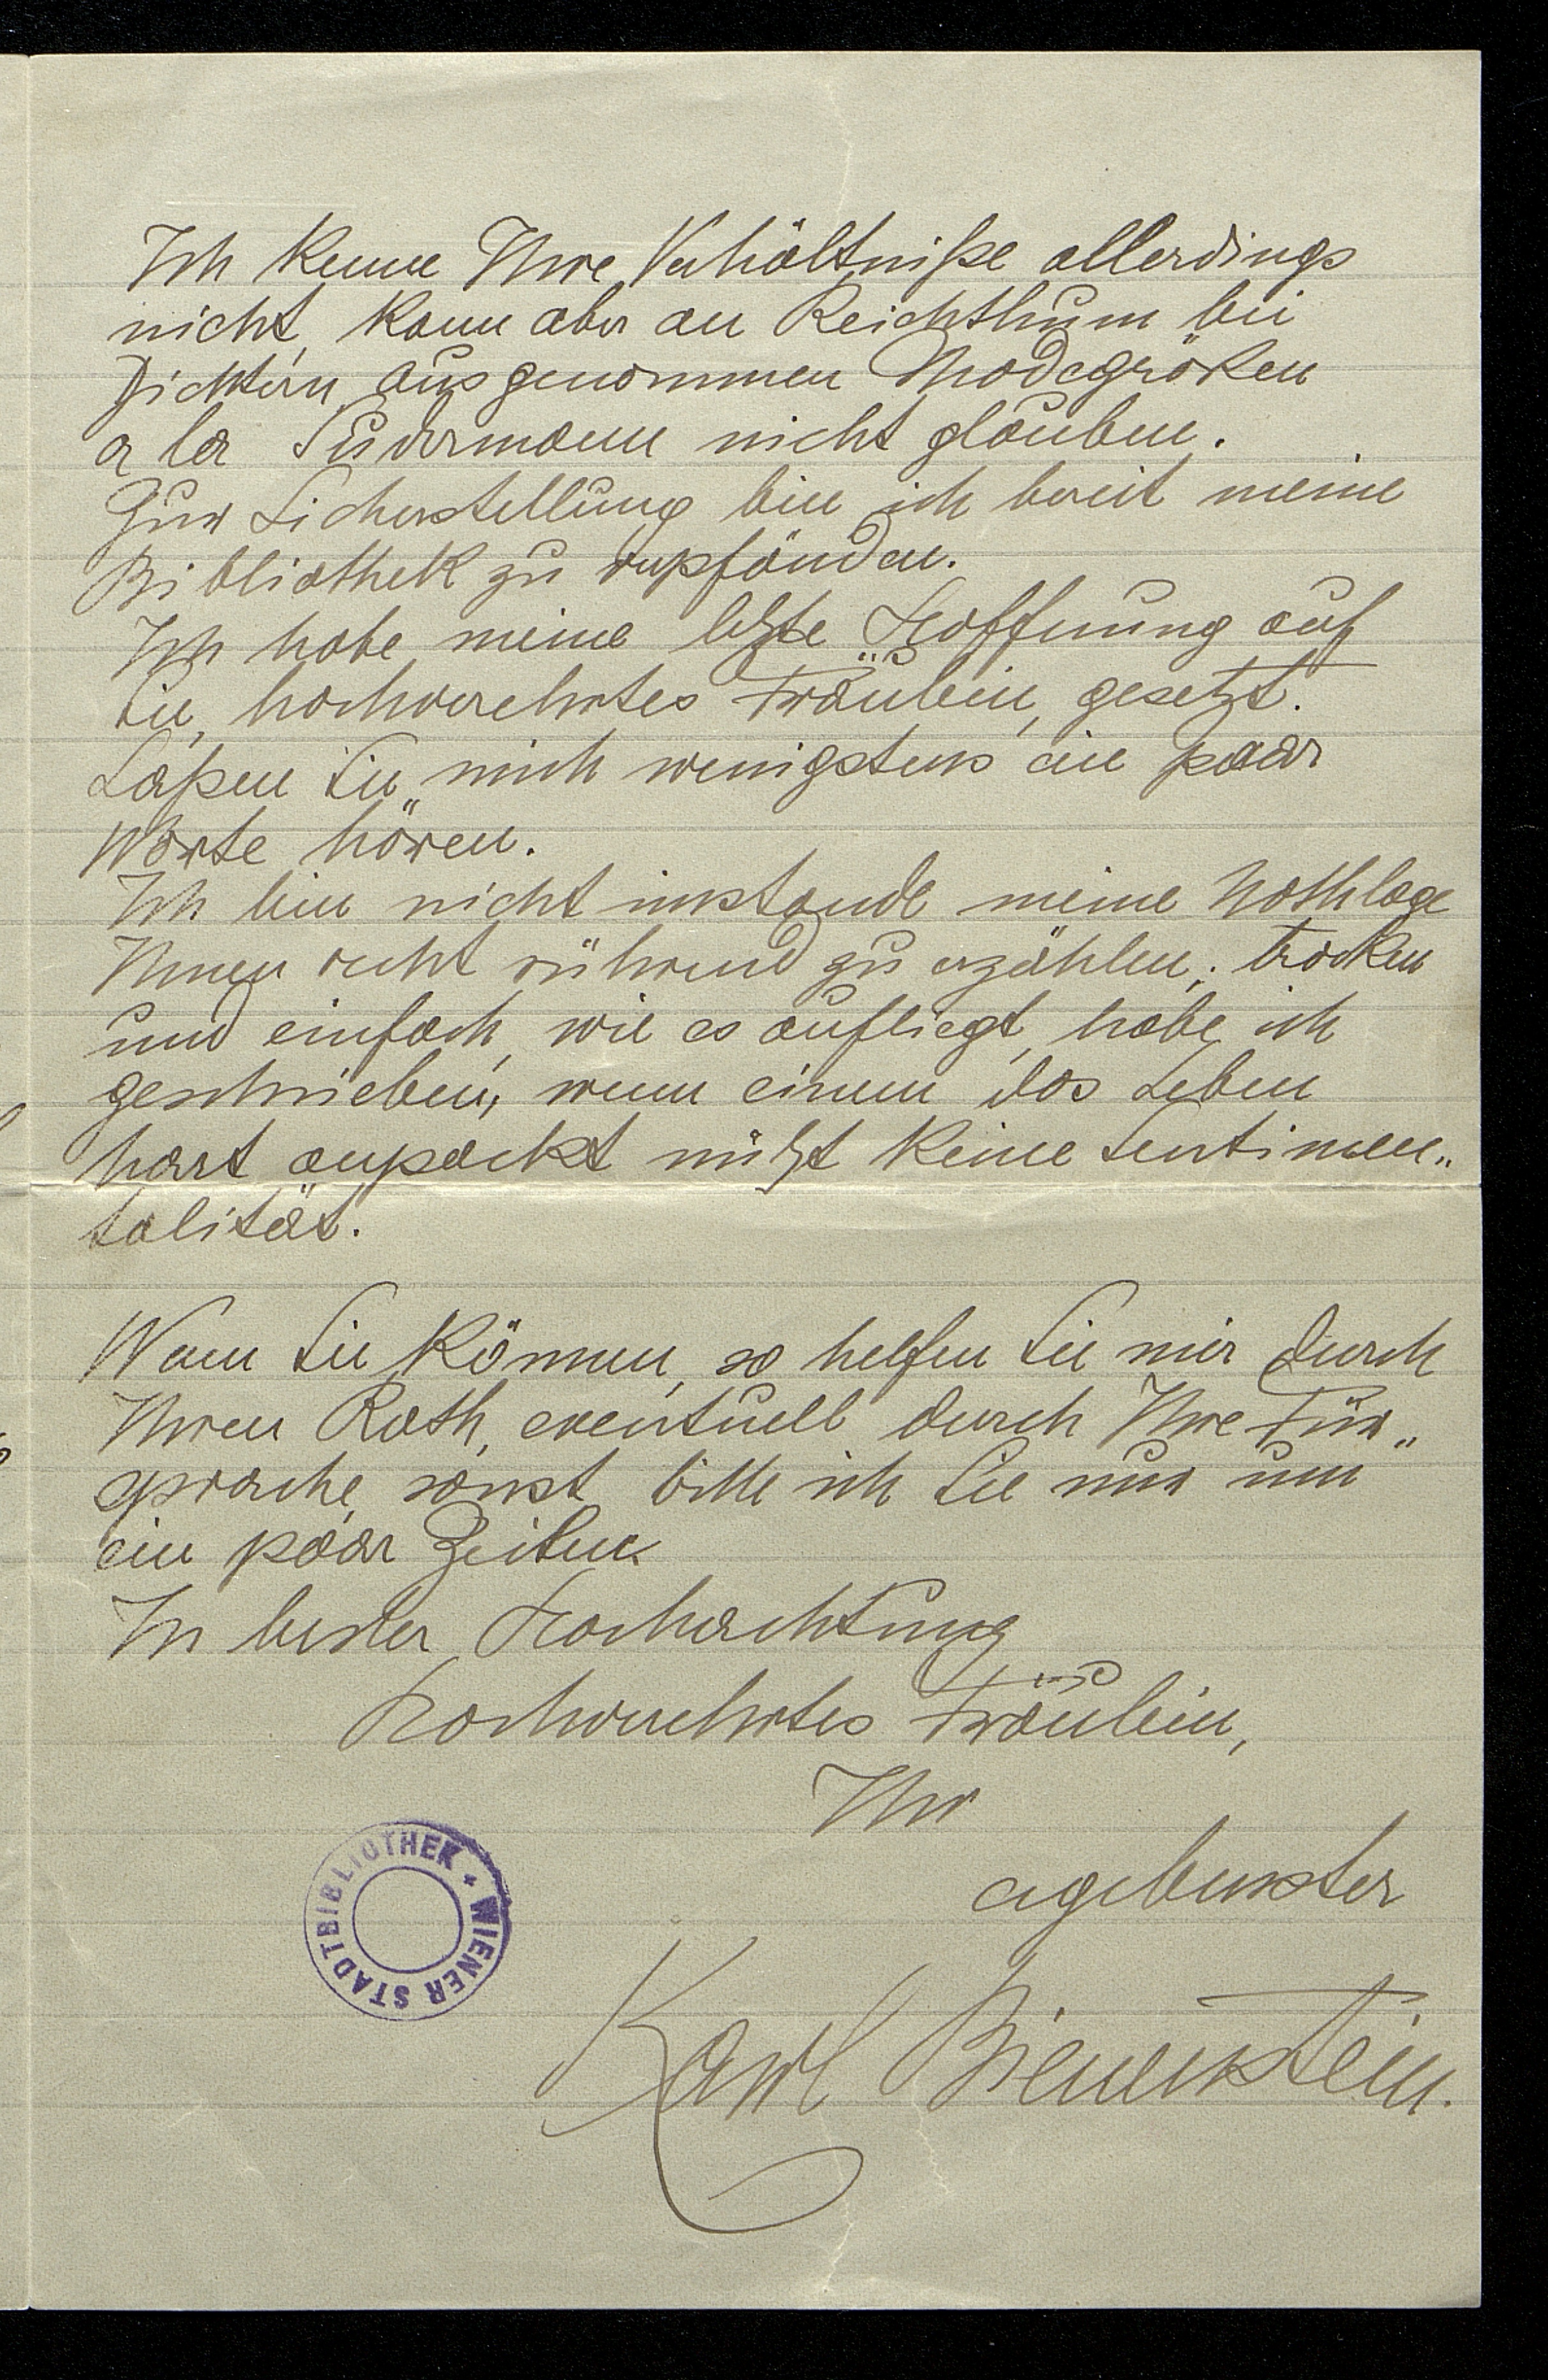 Ich kenne Ihre Verhältniße allerdings
nicht, kann aber an Reichthum bei
Dichtern, ausgenommen Modegrößen
a la Sudermann nicht glauben.
Zur Sicherstellung bin ich bereit meine
Bibliothek zu verpfänden.
Ich habe meine letzte Hoffnung auf
Sie, hochverehrtes Fräulein, gesetzt.
Laßen Sie mich wenigstens ein paar
Worte hören.
Ich bin nicht imstande meine Nothlage
Ihnen recht rührend zu erzählen; trocken
und einfach, wie es aufliegt, habe ich
geschrieben, wenn einem das Leben
hart anpackt nützt keine Sentimen„
talität.
Wenn Sie können, so helfen Sie mir durch
Ihren Rath, eventuell durch Ihre Für„
sprache, sonst bitte ich Sie nur um
ein paar Zeilen.
In bester Hochachtung
hochverehrtes Fräulein,
Ihr
ergebenster
Karl Bienenstein.
WIENER STADTBIBLIOTHEK *